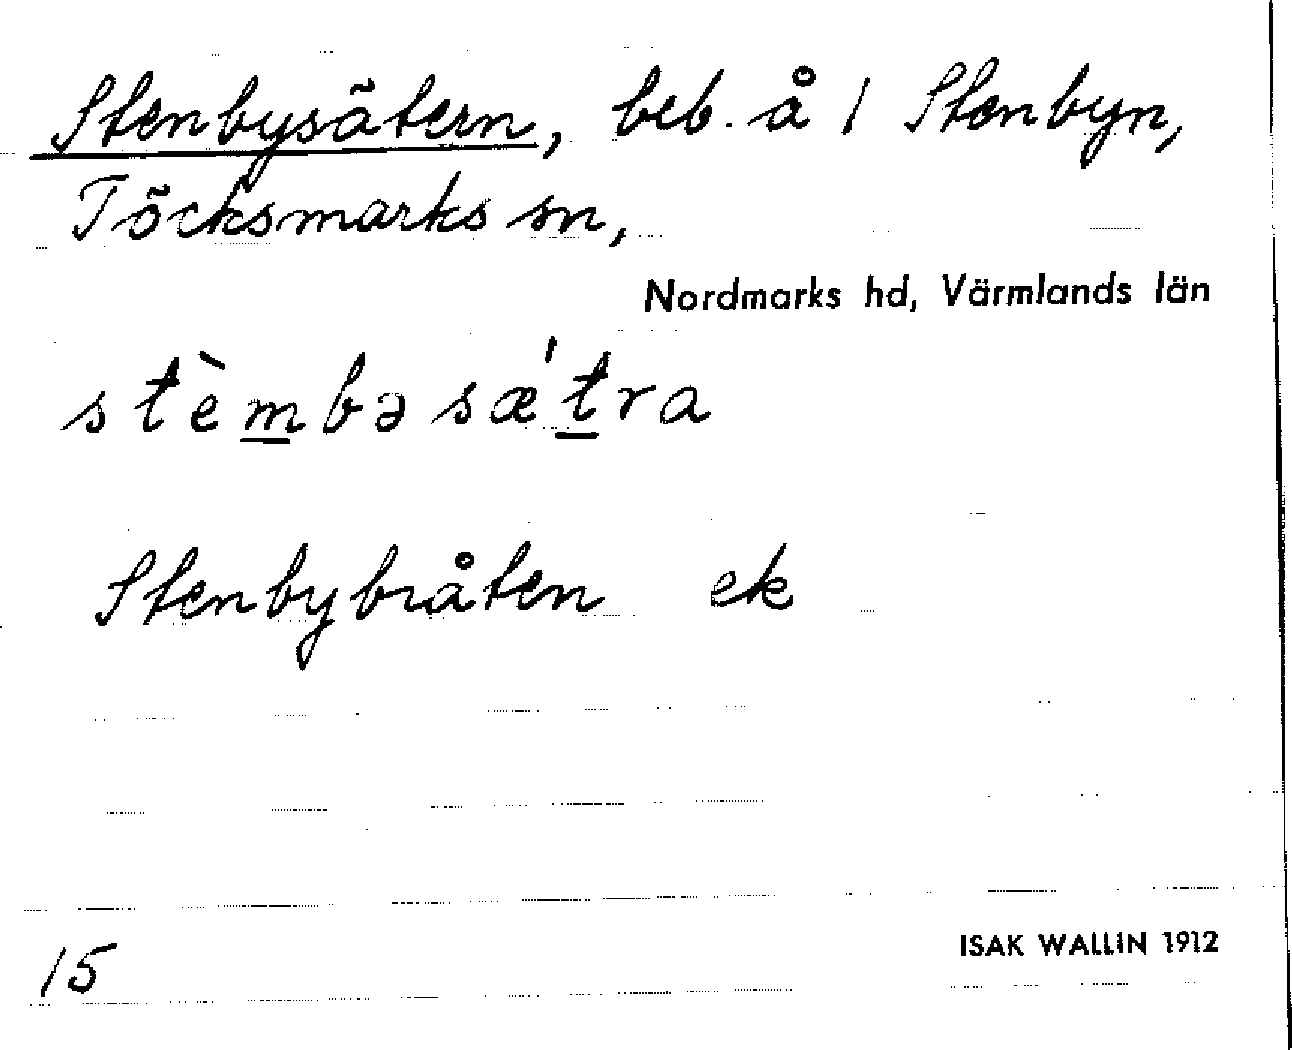 Stenbysätern, beb. å 1 Stenbyn,
Töcksmarks sn,
Nordmarks hd, Värmlands län
stèmbəsæ'tra
Stenbybråten ek
15
ISAK WALLIN 1912